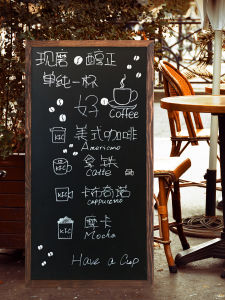 现磨 醇正
单纯一杯
好 Coffee
KSC 美式咖啡
Americano
拿铁
Latte
KSC 卡布奇诺
cappuccino
KSC 摩卡
Mocha
Have a Cup